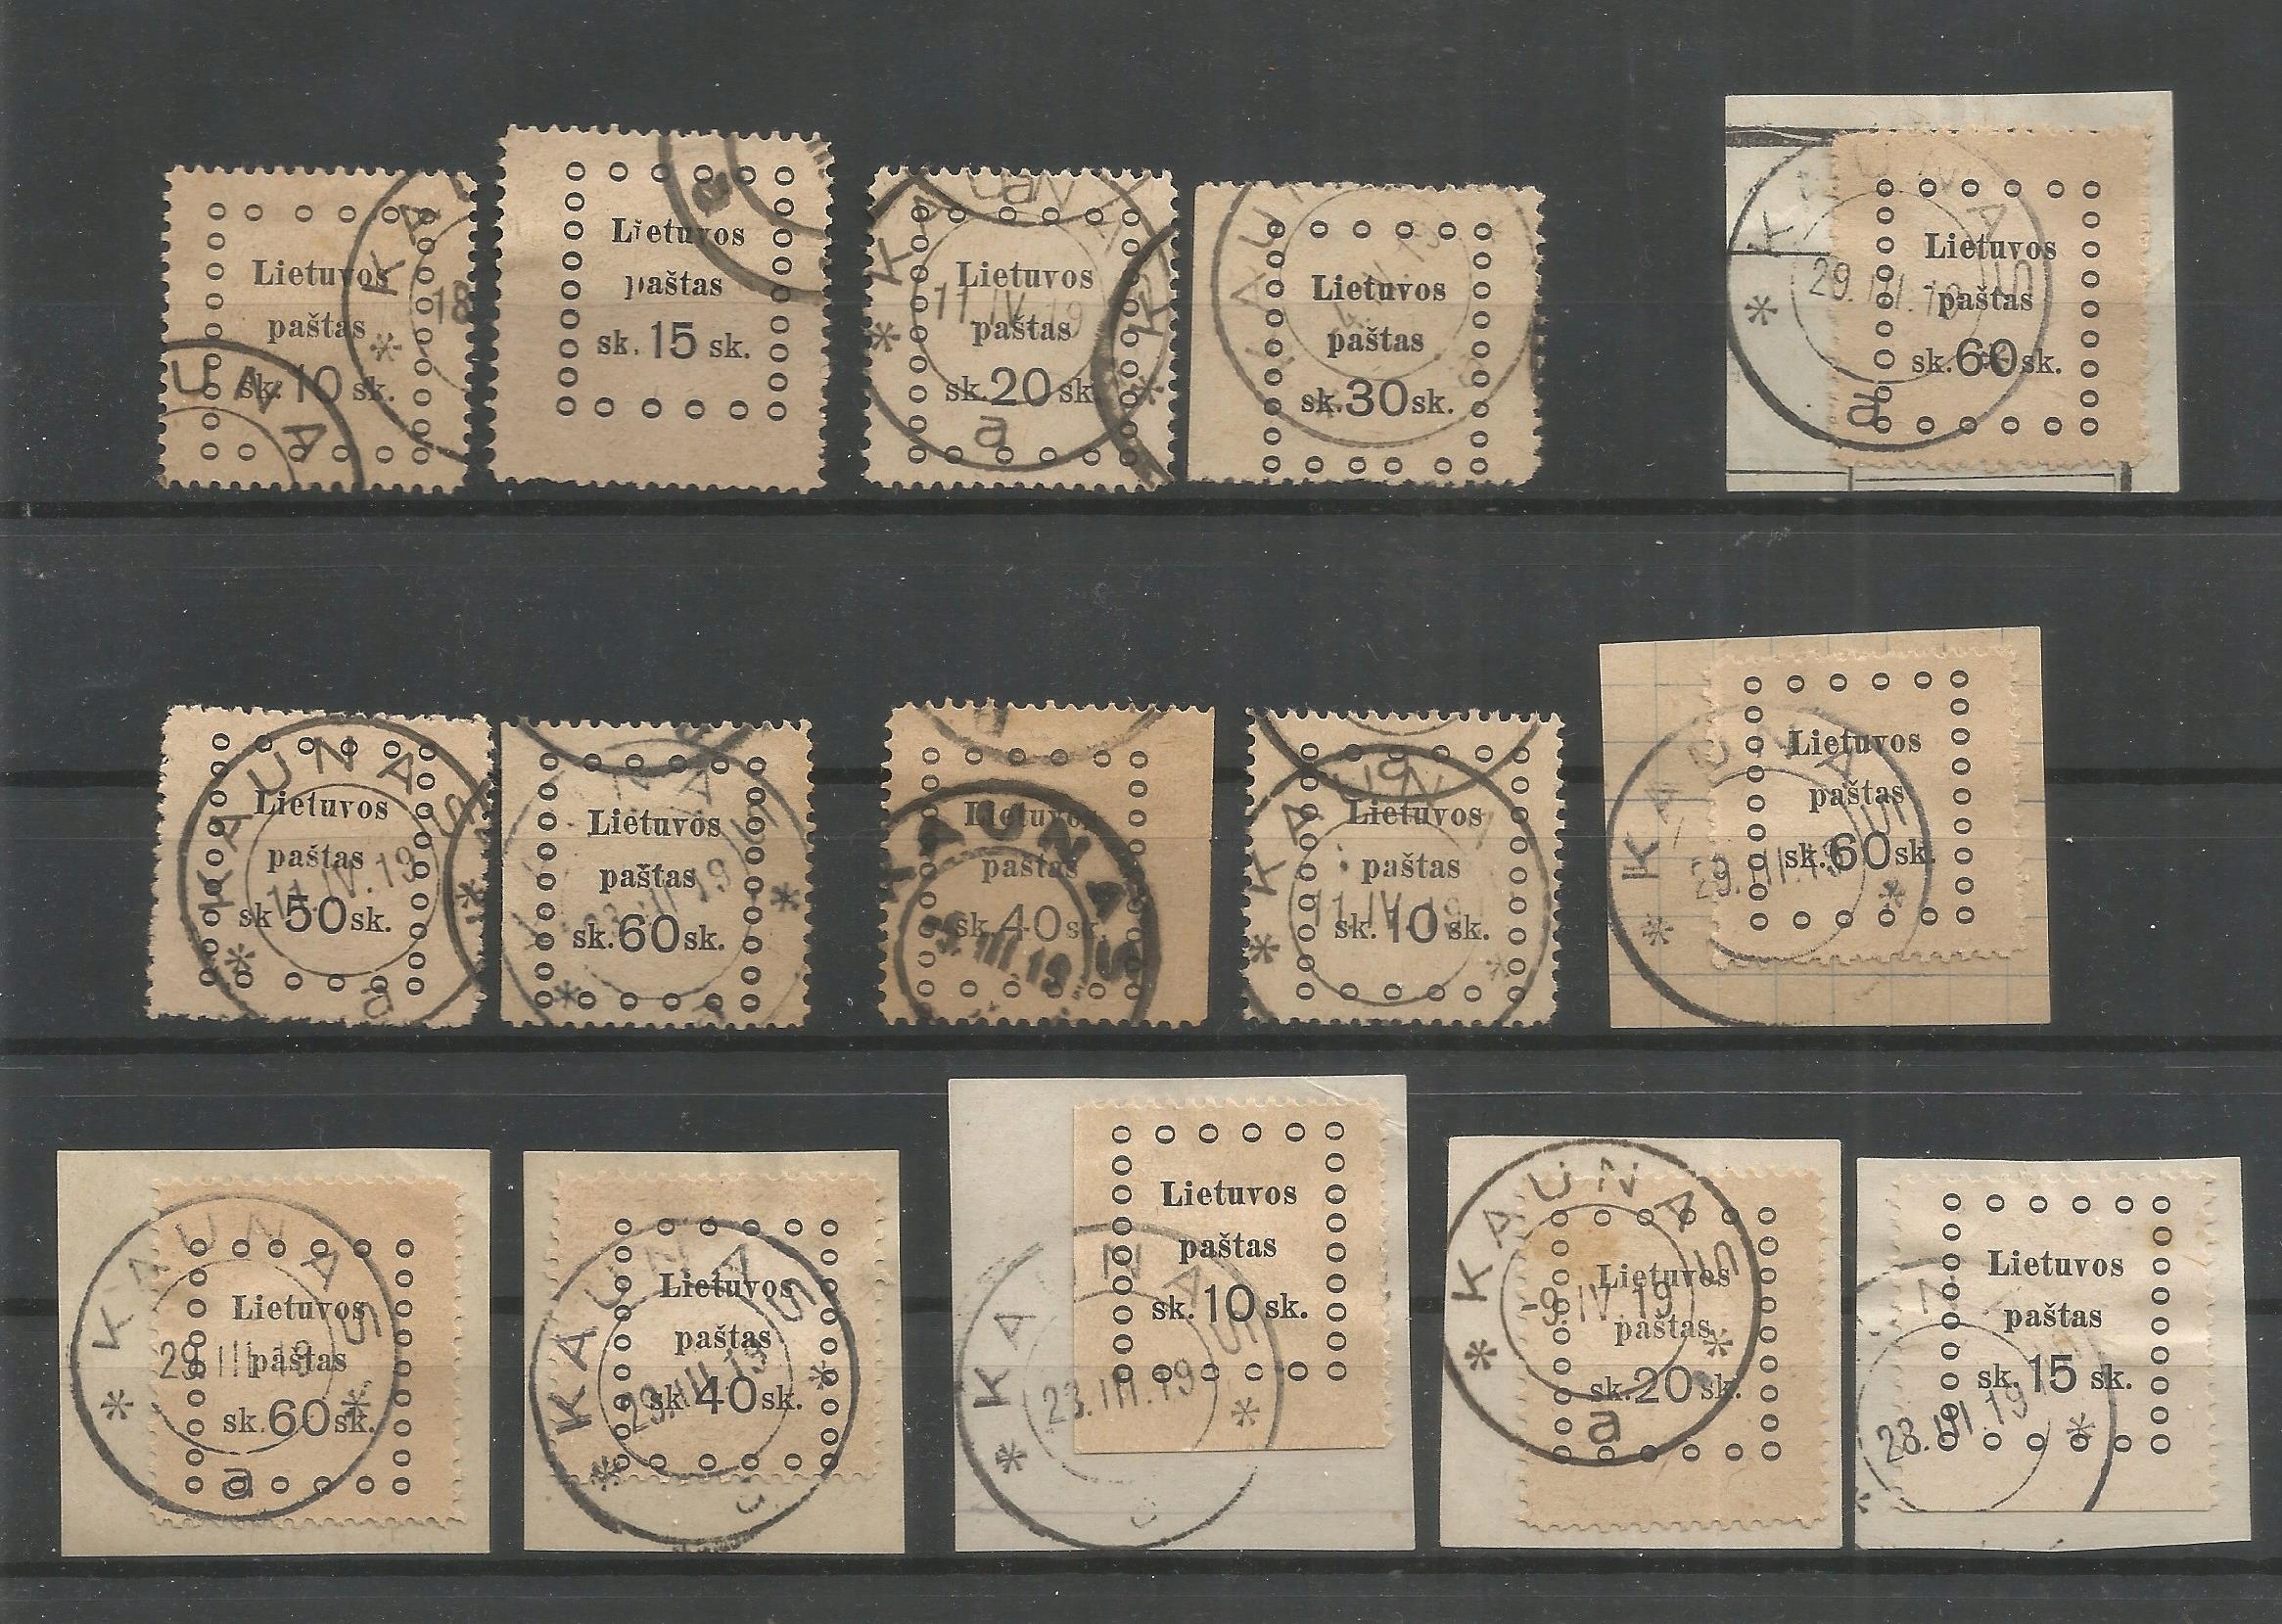 Lietuvos
paštas
sk. 10 sk.
KA
18
UNA
Lietuvos
paštas
sk. 15 sk.
a
Lietuvos
paštas
sk. 20 sk.
KAUNA
11.IV.19
a
K
Lietuvos
paštas
sk. 30 sk.
KAUN
Lietuvos
paštas
sk. 60 sk.
KAUNAS
29.III.19
a
Lietuvos
paštas
sk 50 sk.
KAUNAS
11.IV.19
a
Lietuvos
paštas
sk. 60 sk.
23.III.19
Lietuvos
paštas
sk. 40 sk.
KAUNAS
III 19
Lietuvos
paštas
sk. 10 sk.
KAUN
11.IV.19
Lietuvos
paštas
sk. 60 sk.
KAUNAS
29.III.19
Lietuvos
paštas
sk. 60 sk.
KAUNAS
29.III.19
a
Lietuvos
paštas
sk. 40 sk.
KAUNAS
29.III.19
Lietuvos
paštas
sk. 10 sk.
KAUNAS
23.III.19
Lietuvos
paštas
sk. 20 sk.
KAUNAS
-9.IV 19
a
Lietuvos
paštas
sk. 15 sk.
28.III.19